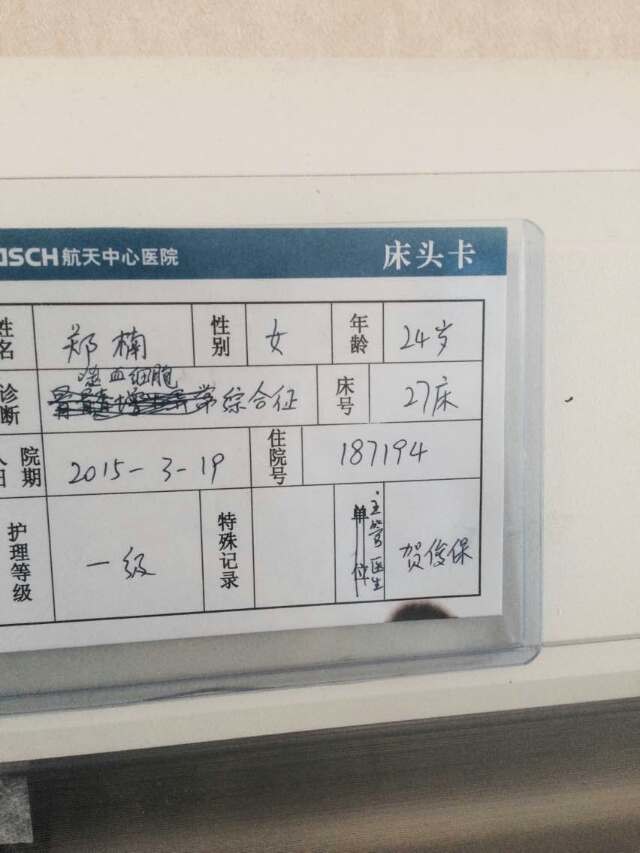 ASCH 航天中心医院 床头卡
姓名 郑楠 性别 女 年龄 24岁
噬血细胞
诊断 综合征 床号 27床
入院日期 2015-3-19 住院号 187194
护理等级 一级 特殊记录 单位 主管医生 贺俊保